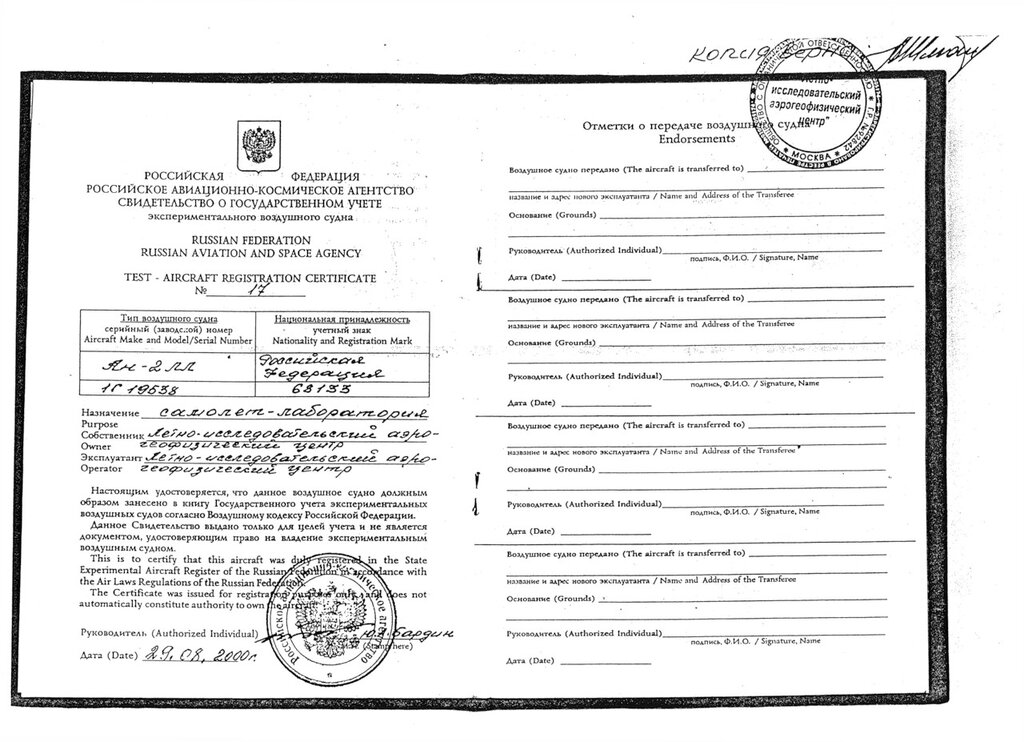 копия верна
Летно-
исследовательский
аэрогеофизический
центр"
* МОСКВА *
РОССИЙСКАЯ ФЕДЕРАЦИЯ
РОССИЙСКОЕ АВИАЦИОННО-КОСМИЧЕСКОЕ АГЕНТСТВО
СВИДЕТЕЛЬСТВО О ГОСУДАРСТВЕННОМ УЧЕТЕ
экспериментального воздушного судна
RUSSIAN FEDERATION
RUSSIAN AVIATION AND SPACE AGENCY
TEST - AIRCRAFT REGISTRATION CERTIFICATE
№ 17
Тип воздушного судна
серийный (заводской) номер
Aircraft Make and Model/Serial Number
Национальная принадлежность
учетный знак
Nationality and Registration Mark
Ан-2ЛЛ
Российская
Федерация
1Г 19538
68133
Назначение самолет-лаборатория
Purpose
Собственник Летно-исследовательский аэро-
Owner геофизический центр
Эксплуатант Летно-исследовательский аэро-
Operator геофизический центр
Настоящим удостоверяется, что данное воздушное судно должным
образом занесено в книгу Государственного учета экспериментальных
воздушных судов согласно Воздушному кодексу Российской Федерации.
Данное Свидетельство выдано только для целей учета и не является
документом, удостоверяющим право на владение экспериментальным
воздушным судном.
This is to certify that this aircraft was duly registered in the State
Experimental Aircraft Register of the Russian Federation in accordance with
the Air Laws Regulations of the Russian Federation.
The Certificate was issued for registration purposes only and does not
automatically constitute authority to own the aircraft.
Руководитель (Authorized Individual) Ю.А. Бардин
М.П. (Stamp here)
Дата (Date) 29.08.2000г.
Российское авиационно-космическое агентство
Отметки о передаче воздушного судна
Endorsements
Воздушное судно передано (The aircraft is transferred to)
название и адрес нового эксплуатанта / Name and Address of the Transferee
Основание (Grounds)
Руководитель (Authorized Individual)
подпись, Ф.И.О. / Signature, Name
Дата (Date)
Воздушное судно передано (The aircraft is transferred to)
название и адрес нового эксплуатанта / Name and Address of the Transferee
Основание (Grounds)
Руководитель (Authorized Individual)
подпись, Ф.И.О. / Signature, Name
Дата (Date)
Воздушное судно передано (The aircraft is transferred to)
название и адрес нового эксплуатанта / Name and Address of the Transferee
Основание (Grounds)
Руководитель (Authorized Individual)
подпись, Ф.И.О. / Signature, Name
Дата (Date)
Воздушное судно передано (The aircraft is transferred to)
название и адрес нового эксплуатанта / Name and Address of the Transferee
Основание (Grounds)
Руководитель (Authorized Individual)
подпись, Ф.И.О. / Signature, Name
Дата (Date)